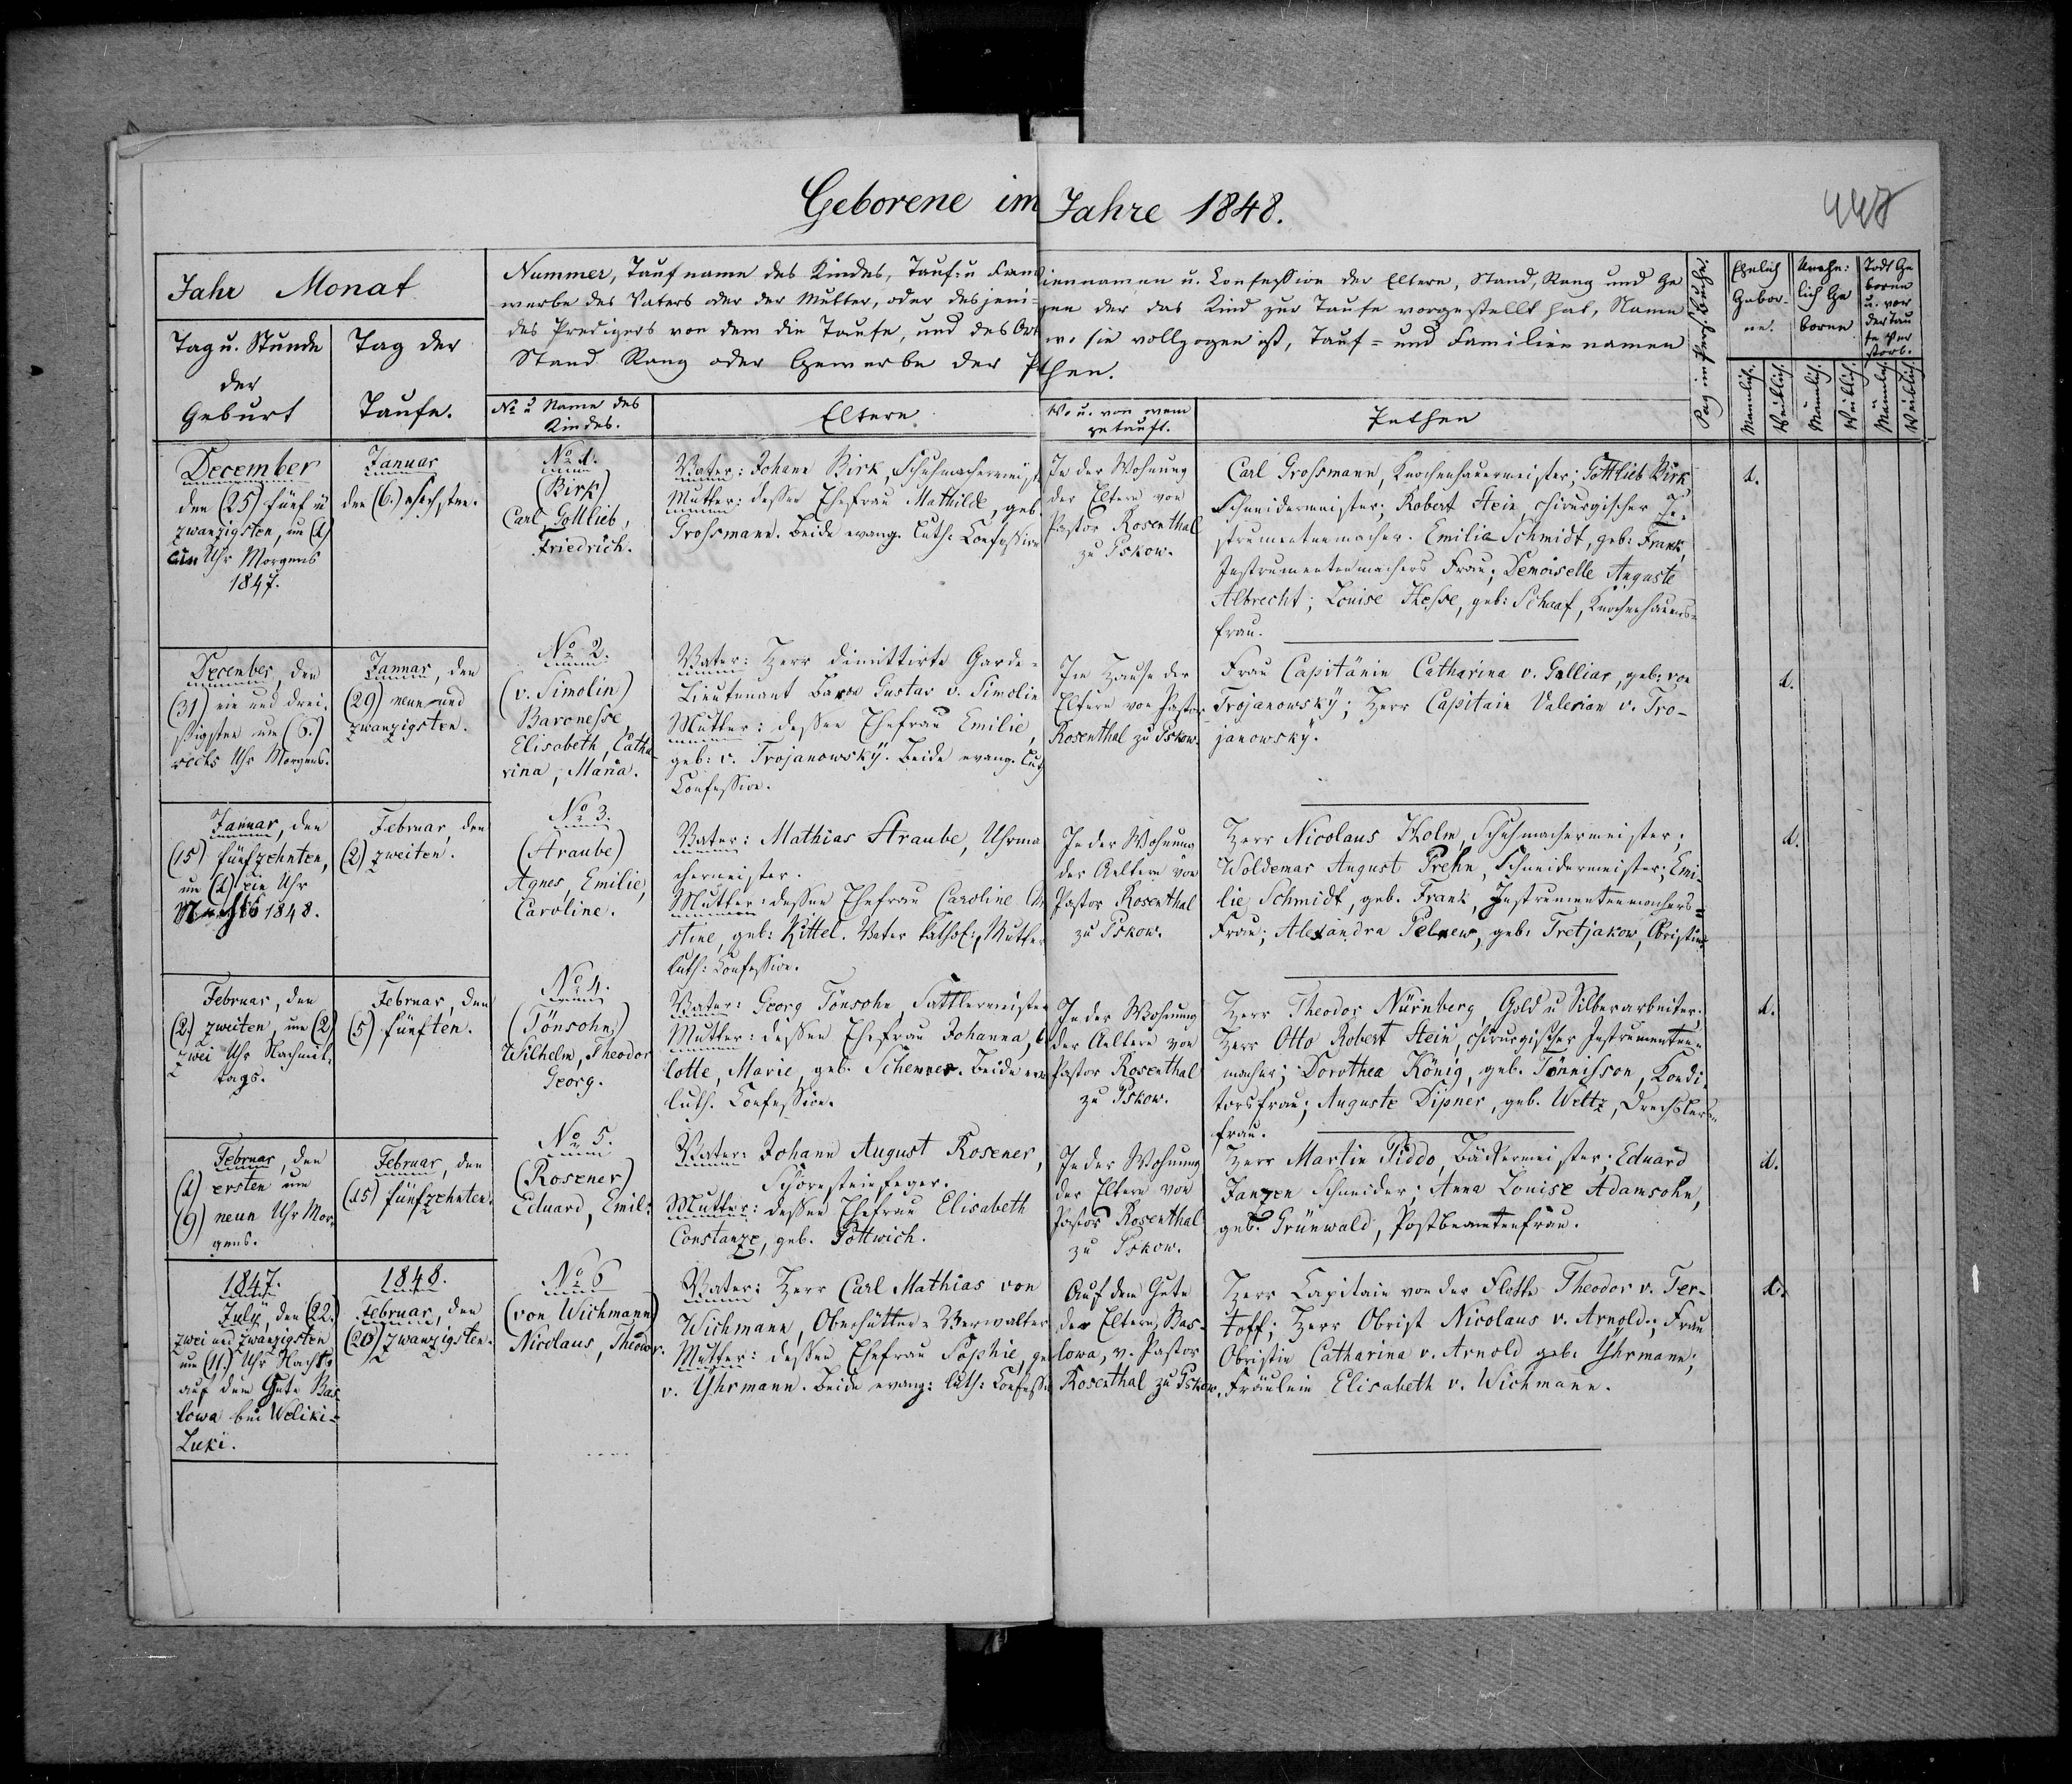 Geborene im Jahre 1848.
448
Jahr Monat
Tag u. Stunde
der
Geburt
Tag der
Taufe.
Nummer, Taufname des Kindes, Tauf- u Familiennamen u. Confession der Eltern, Stand, Rang und Ge
werbe des Vaters oder der Mutter, oder desjenigen der das Kind zur Taufe vorgestellt hat, Name
des Predigers von dem die Taufe, und des Orts wo sie vollzogen ist, Tauf- und Familiennamen
Stand Rang oder Gewerbe der Pathen.
No u Name des
Kindes.
Eltern
Wo u. von wem
getauft.
Pathen
Pag im Pers. Buche.
Ehelich
Gebor-
ne.
Unehe:
lich Ge
borne
Todt Ge
borne
u. vor
der Tau
fe Ver
storb.
Männlich.
Weiblich.
Männlich.
Weiblich.
Männlich.
Weiblich.
December
den (25) fünf u
zwanzigsten, um (1)
ein Uhr Morgens
1847.
Januar
den (6.) sechsten.
No 1.
(Birk)
Carl, Gottlieb,
Friedrich.
Vater: Johann Birk, Schuhmachermeist
Mutter: dessen Ehefrau Mathild, geb.
Grossmann. Beide evang. luth: Confession
In der Wohnung
der Eltern von
Pastor Rosenthal
zu Pskow.
Carl Grossmann, Knochenhauermeister; Gottlieb Birk
Schneidermeister; Robert Stein, chirurgischer In-
strumentenmacher. Emilie Schmidt, geb: Frank,
Instrumentenmachers Frau; Demoiselle Auguste
Albrecht; Louise Hesse, geb: Schaaf, Knochenhauers-
frau.
1.
December, den
(31) ein und drei-
ssigsten um (6.)
sechs Uhr Morgens.
Januar, den
(29) neun und
zwanzigsten.
No 2.
(v. Simolin)
Baronesse
Elisabeth, Catha
rina, Maria.
Vater: Herr dimittirte Garde-
Lieutenant Baron Gustav v. Simolin
Mutter: dessen Ehefrau Emilie,
geb: v. Trojanowskÿ. Beide evang. luth
Confession.
Im Hause der
Eltern von Pastor
Rosenthal zu Pskow.
Frau Capitänin Catharina v. Galliar, geb: von
Trojanowskÿ; Herr Capitain Valerian v. Tro-
janowskÿ.
1.
Januar, den
(15) fünfzehnten,
um (1) ein Uhr
1848.
Februar, den
(2) zweiten.
No 3.
(Straube)
Agnes, Emilie,
Caroline.
Vater: Mathias Straube, Uhrma
chermeister.
Mutter: dessen Ehefrau Caroline
stine, geb: Kittel. Vater kathol:, Mutter
luth: Confession.
In der Wohnung
der Aeltern von
Pastor Rosenthal
zu Pskow.
Herr Nicolaus Holm, Schuhmachermeister;
Woldemar August Prehn, Schneidermeister; Emi-
lie Schmidt, geb. Frank, Instrumentenmachers-
Frau; Alexandra geb: Tretjakow,
1.
Februar, den
(2.) zweiten, um (2)
zwei Uhr Nachmit-
tags.
Februar, den
(5) fünften.
No 4.
(Tönsohn)
Wilhelm, Theodor
Georg.
Vater: Georg Tönsohn, Sattlermeister
Mutter: dessen Ehefrau Johanna,
lotte, Marie, geb. Beide
luth. Confession.
In der Wohnung
der Aeltern von
Pastor Rosenthal
zu Pskow.
Herr Theodor Nürnberg, Gold u Silberarbeiter;
Herr Otto Robert Stein, chirurgischer Instrumenten-
macher; Dorothea König, geb. Tönnisson, Kondi-
torsfrau; Auguste Dipner, geb. Weltz, Drechslers-
frau.
1.
Februar, den
(1) ersten um
(9) neun Uhr Mor-
gens.
Februar, den
(15) fünfzehnten.
No 5.
(Rosener)
Eduard, Emil.
Vater: Johann August Rosener,
Schornsteinfeger.
Mutter: dessen Ehefrau Elisabeth
Constanze, geb. Pottwich.
In der Wohnung
der Eltern von
Pastor Rosenthal
zu Pskow.
Herr Martin Piddo, Bäckermeister; Eduard
Janzen Schneider; Anna Louise Adamsohn,
geb. Grünwald, Postbeamtenfrau.
1.
1847.
Julÿ, den (22.)
zwei und zwanzigsten
um (11.) Uhr Nachts
auf dem Gute Bas
lowa bei Weliki-
Luki.
1848.
Februar, den
(20) zwanzigsten.
No 6
(von Wichmann)
Nicolaus, Theodor.
Vater: Herr Carl Mathias von
Wichmann, Verwalter
Mutter: dessen Ehefrau Sophie, ge
v. Yhrmann. Beide evang: luth: Confessi
Auf dem Gute
der Eltern, Bas-
lowa, v. Pastor
Rosenthal zu Pskow.
Herr Capitain von der Flotte Theodor v. Ter-
toff; Herr Obrist Nicolaus v. Arnold; Frau
Obristin Catharina v. Arnold geb: Yhrmann;
Fräulein Elisabeth v. Wichmann.
1.